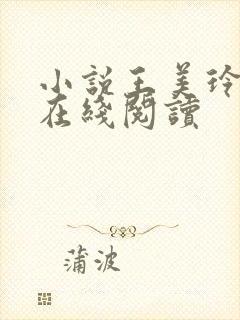 小說王美玲
在綫閱讀
蒲波